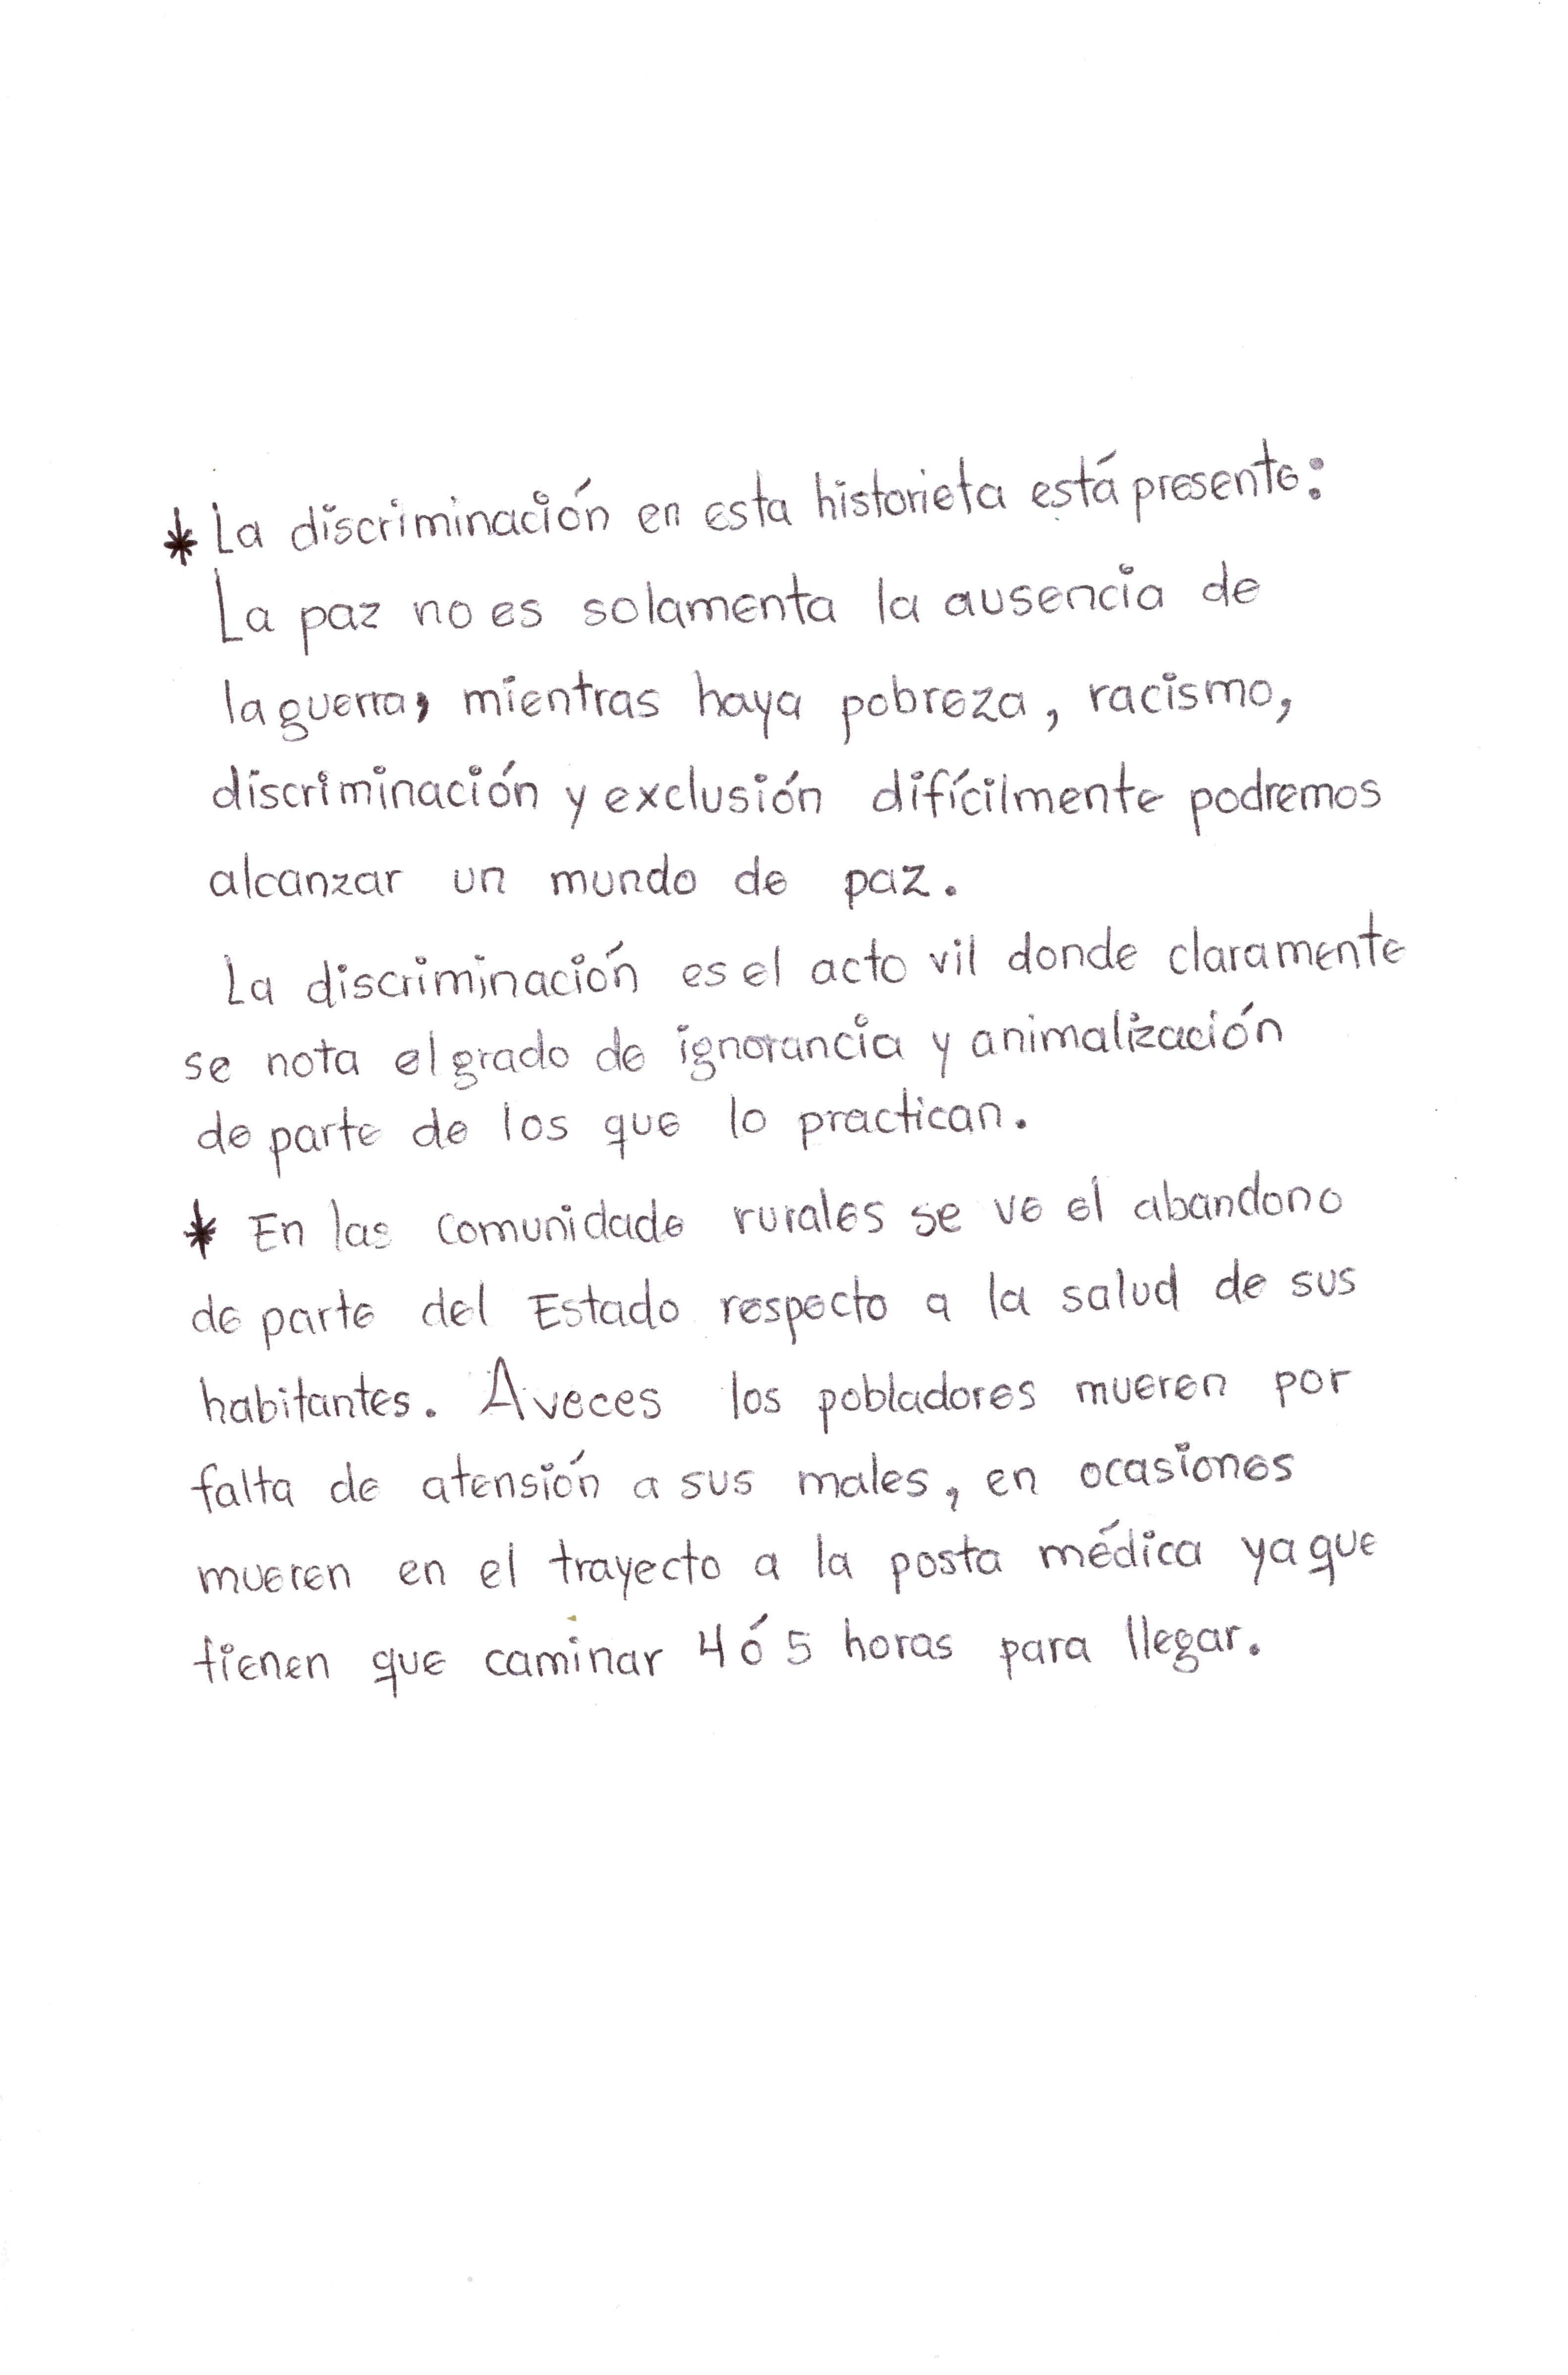 * La discriminación en esta historieta está presente:
La paz no es solamenta la ausencia de
la guerra, mientras haya pobreza, racismo,
discriminación y exclusión difícilmente podremos
alcanzar un mundo de paz.
La discriminación es el acto vil donde claramente
se nota el grado de ignorancia y animalización
de parte de los que lo practican.
* En las comunidade rurales se ve el abandono
de parte del Estado respecto a la salud de sus
habitantes. Aveces los pobladores mueren por
falta de atensión a sus males, en ocasiones
mueren en el trayecto a la posta médica ya que
tienen que caminar 4 ó 5 horas para llegar.